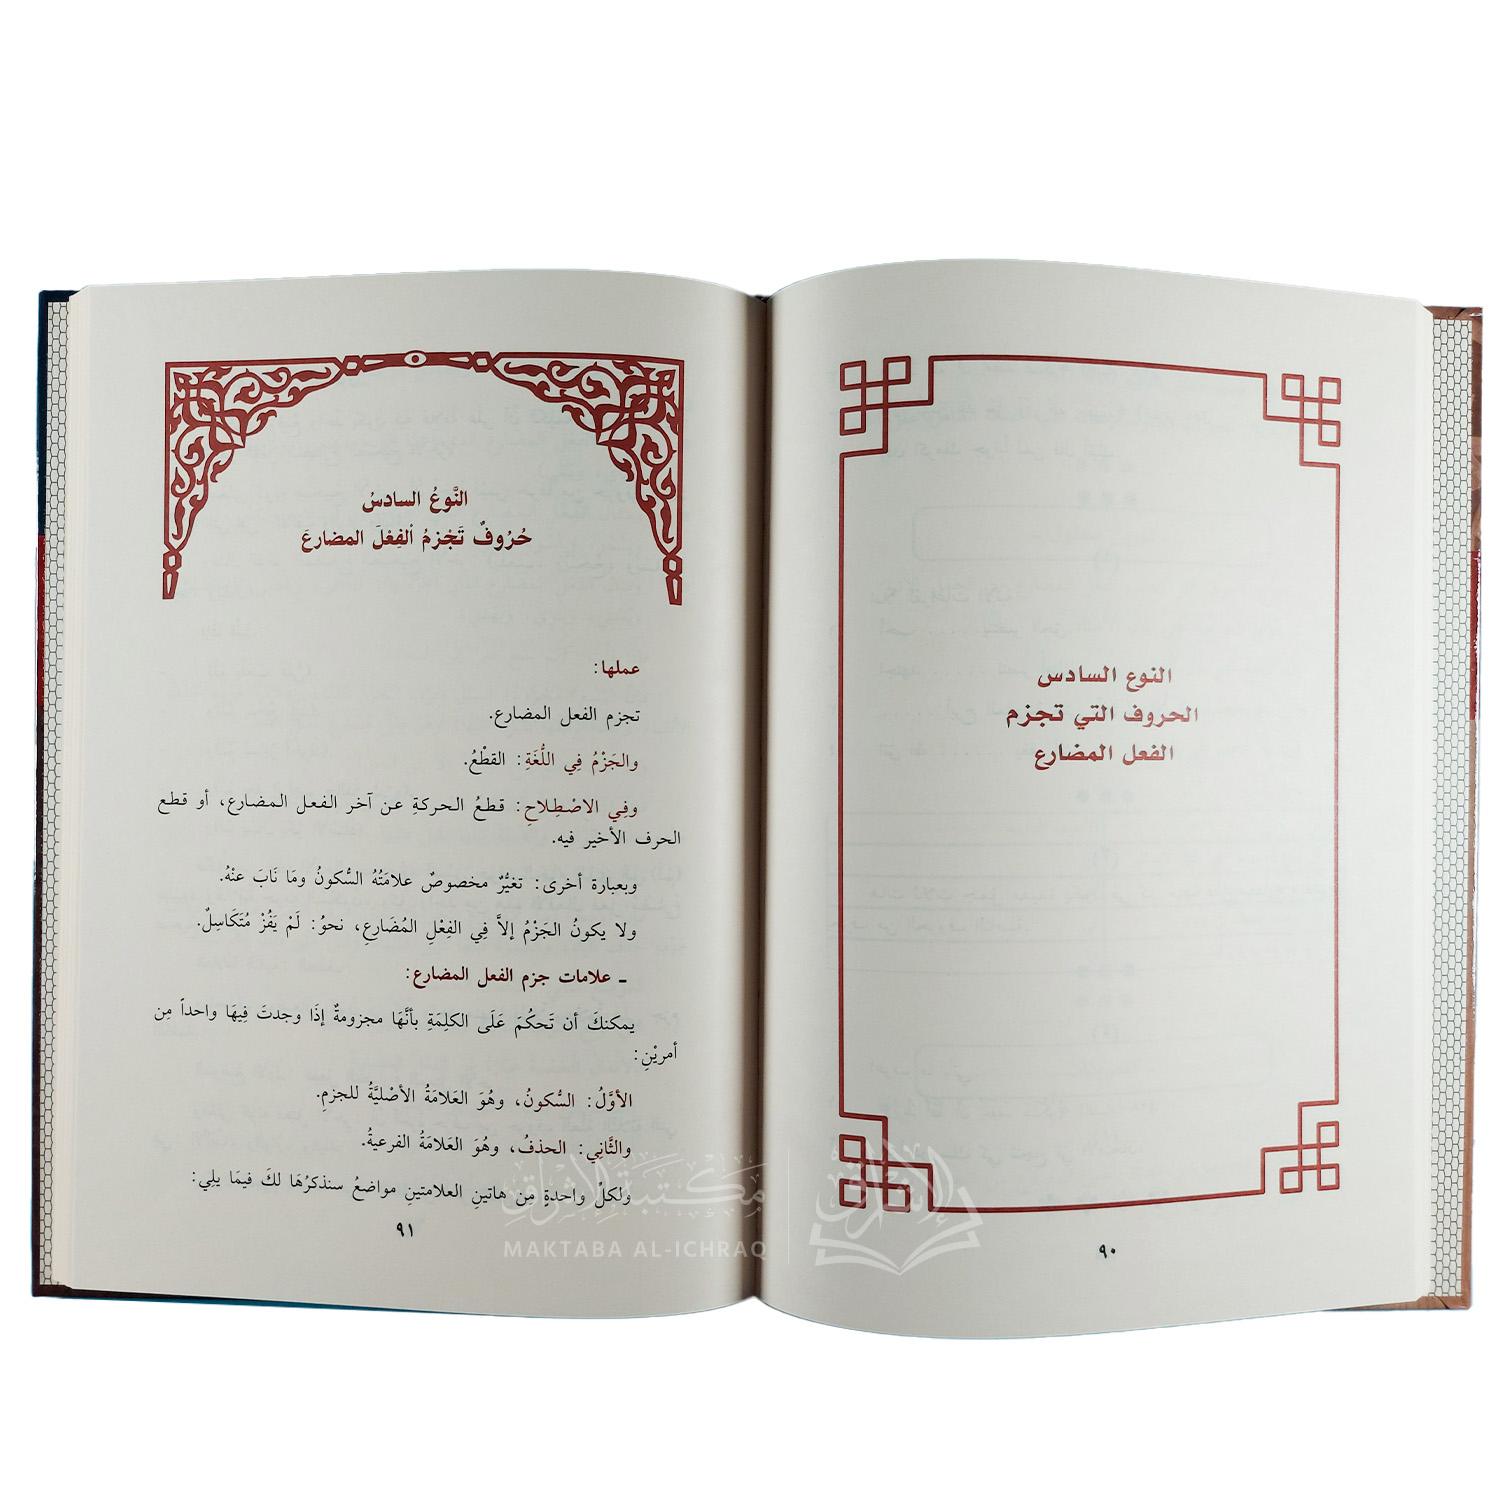 النوع السادس
الحروف التي تجزم
الفعل المضارع
٩٠
النَّوعُ السادسُ
حُرُوفٌ تَجْزِمُ الفِعْلَ المضارعَ
عملها:
تجزم الفعل المضارع.
والجَزْمُ فِي اللُّغَةِ: القطْعُ.
وفِي الاصْطِلاحِ: قطعُ الحركةِ عن آخر الفعل المضارع، أو قطع
الحرف الأخير فيه.
وبعبارة أخرى: تغيُّرٌ مخصوصٌ علامَتُهُ السُّكونُ ومَا نَابَ عنْهُ.
ولا يكونُ الجَزْمُ إلاَّ فِي الفِعْلِ المُضَارِعِ، نحوُ: لَمْ يَفُزْ مُتَكَاسِلٌ.
ـ علامات جزم الفعل المضارع:
يمكنكَ أن تَحكُمَ عَلَى الكلِمَةِ بأنَّهَا مجزومةٌ إذَا وجدتَ فِيهَا واحداً مِن
أمريْنِ:
الأوَّلُ: السُّكونُ، وهُوَ العَلامَةُ الأصْليَّةُ للجزمِ.
والثَّانِي: الحذفُ، وهُوَ العَلامَةُ الفرعيةُ.
ولكلِّ واحدةٍ مِن هاتينِ العلامتينِ مواضعُ سنذكرُهَا لكَ فيمَا يلِي:
٩١
مكتبة الإشراق
MAKTABA AL-ICHRAQ
الإشراق